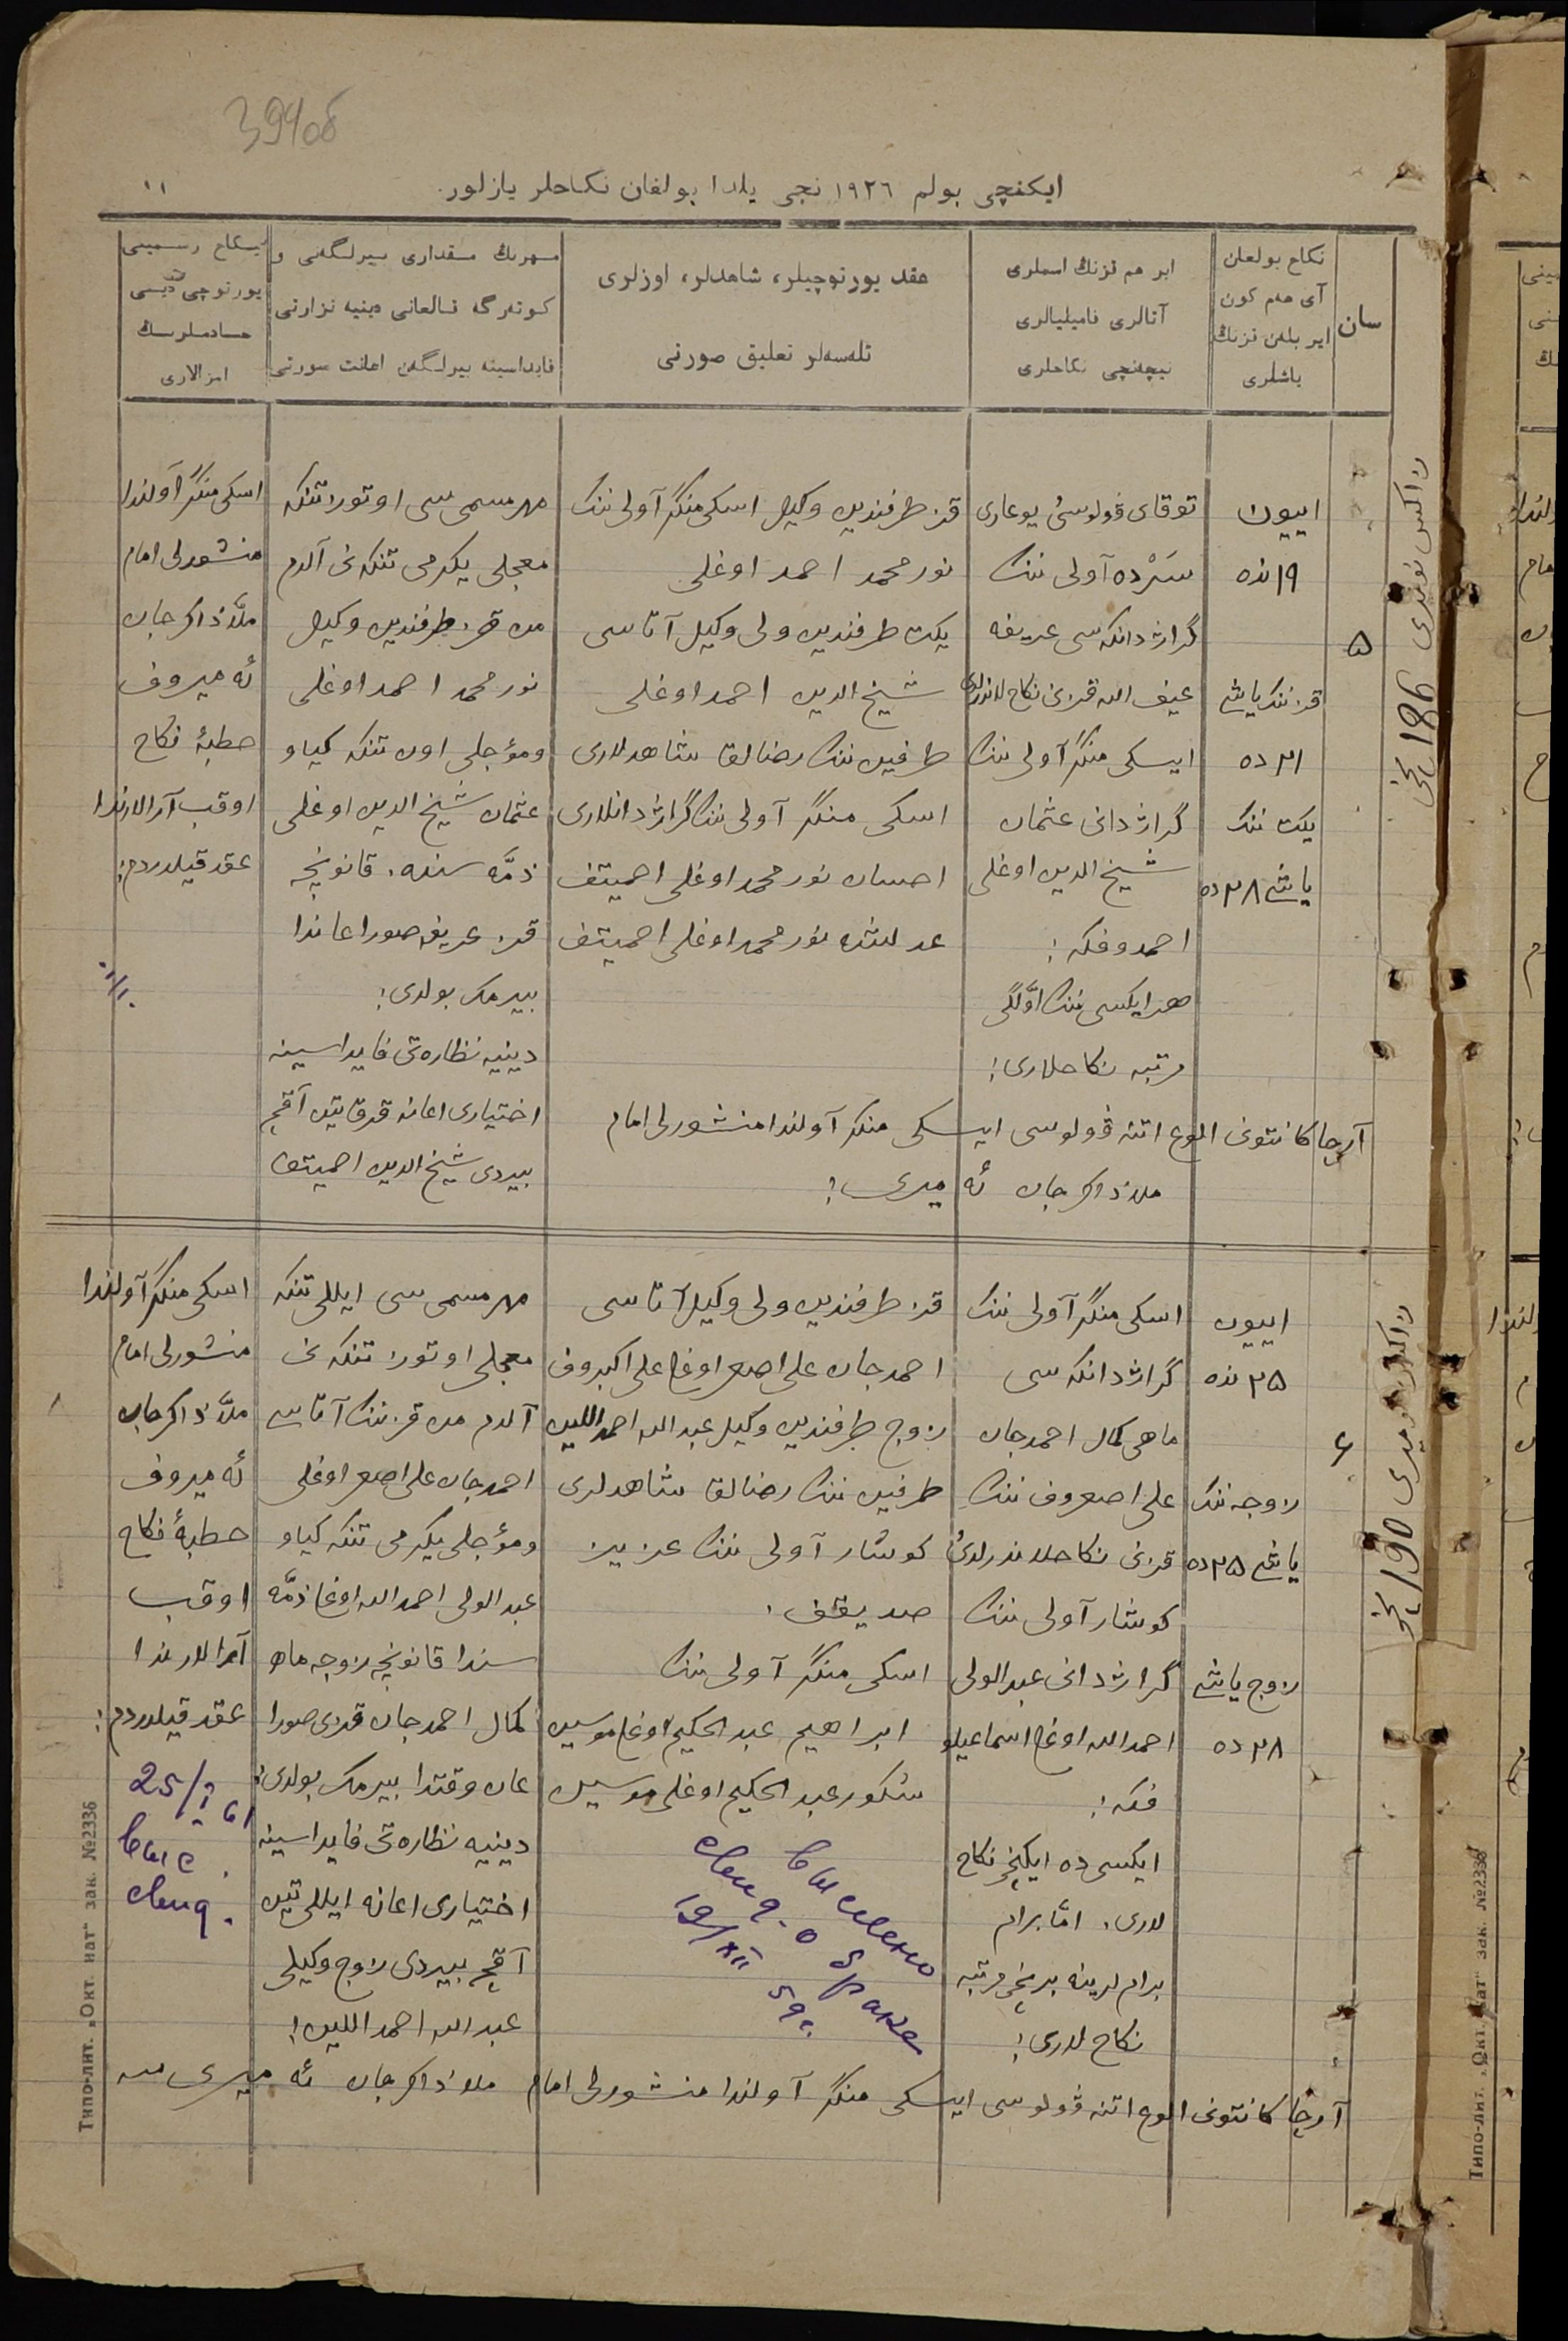 394об
ایکنچی بولم ۱۹۲٦ نچی یلدا بولغان نکاحلر یازلور.
۱۱
سان
نکاح بولعان
آی هەم کون
ایر بلەن قزنڭ
یاشلری
ایر هم قزنڭ اسملری
آتالری فامیلیالری
نیچەنچی نکاحلری
عقد یورتوچیلر، شاهدلر، اوزلری
تلەسەلر تعلیق صورتی
مهرنڭ مقداری بیرلگەنی و
کوتەرگە قالعانی دینیه نزارتی
فایداسینه بیرلگەن اعانت صورتی
نکاح رسمینی
یورتوچی
امزالاری
۵
اییون
۱۹ نده
قزننک یاشی
۲۱ ده
یکت ننک
یاشی ۲۸ ده
توقای ۋولوسی یوعاری
سَرْده آولی ننک
گراژدانکەسی عریفه
ایسکی منگر آولی ننک
گراژدانی عثمان
شیخ الدین اوغلی
هر ایکسی ننک اوّلگی
مرتبه نکاحلاری؛
قز طرفندین وکیل اسکی منگر آولی ننک
نور محمد احمد اوغلی
یکت طرفندین ولی وکیل آتاسی
شیخ الدین احمد اوغلی
طرفین ننک رضالق شاهدلاری
اسکی منگر آولی ننک گراژدانلاری
احسان نور محمد اوغلی احمیتف
نور محمد اوغلی احمیتف
مهر مسمی سی اوتوز تنکه
معجلی یکرمی تنکه نی آلدم
من قز طرفندین وکیل
نور محمد احمد اوغلی
ومؤجلی اون تنکه کیاو
عثمان شیخ الدین اوغلی
ذمّه سنده. قانونچه
قز عریفه صوراعاندا
بیرمک بولدی؛
دینیه نظاره تی فایداسینه
اختیاری اعانه قرق تین آقچه
بیردی شیخ الدین احمیتف
اسکی منگر آولندا
منشورلی امام
ملّا ذاکرجان
ئه میروف
خطبهٔ نکاح
اوقب آرالارندا
عقد قیلدردم؛
آرچا کانتونی الوع اتنه ۋولوسی ایسکی منگر آولندا منشورلی امام
ملا ذاکرجان ئه میری؛
186
۶
اییون
۲۵ نده
زوجه ننک
یاشی ۲۵ ده
زوج یاشی
۲۸ ده
اسکی منگر آولی ننک
گراژدانکه سی
ماهی کمال احمدجان
علی اصعروف ننک
قزی نکاحلاندرلدی
کوشار آولی ننک
گراژدانی عبدالولی
احمدالله اوغلی اسماعیلو
فکه؛
ایکسی ده ایکنچی نکاح
لاری. امّا برام
برام لرینه برنچی مرتبه
نکاح لاری؛
قز طرفندین ولی وکیل آتاسی
احمدجان علی اصعر اوغلی علی اکبروف
زوج طرفندین وکیل عبدالله احمداللین
طرفین ننک رضالق شاهدلری
کوشار آولی ننک عزیز
صدیقف.
اسکی منگر آولی ننک
ابراهیم عبدالحکیم اوغلی موسین
شکور عبدالحکیم اوغلی موسین
مهر مسمی سی ایللی تنکه
معجلی اوتوز تنکه نی
آلدم من قز ننک آتاسی
احمدجان علی اصعر اوغلی
ومؤجلی یکرمی تنکه کیاو
عبدالولی احمدالله اوغلی ذمّه
سندا قانونچه زوجه ماهی
کمال احمدجان قزی صورا
عان وقتدا بیرمک بولدی؛
دینیه نظاره تی فایداسینه
اختیاری اعانه ایللی تین
آقچه بیردی زوج وکیلی
عبدالله احمداللین؛
اسکی منگر آولندا
منشورلی امام
ملّا ذاکرجان
ئه میروف
خطبهٔ نکاح
اوقب
آرالارندا
عقد قیلدردم؛
25/I 61
выс
свид.
Выслено
свид. о браке
19/XII 59г.
آرچا کانتونی الوع اتنه ۋولوسی ایسکی منگر آولندا منشورلی امام ملا ذاکرجان ئه میری
190
Типо-лит. „Окт. нат" зак. №2336
Типо-лит. „Окт. нат" зак. №2336